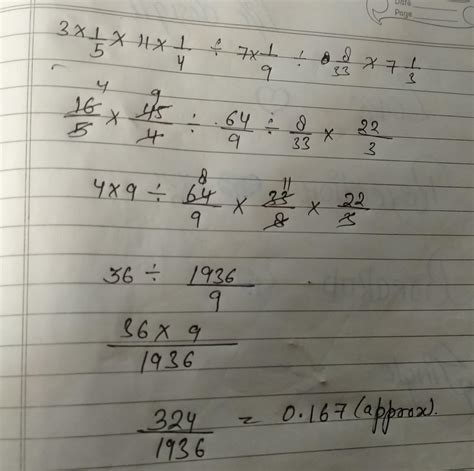 Date
Page
3 × 1/5 × 4 × 1/4 ÷ 7 × 1/9 ÷ 8/33 × 7 1/3
4 9
16/5 × 45/4 ÷ 64/9 ÷ 8/33 × 22/3
8 11
4 × 9 ÷ 64/9 × 33/8 × 22/3
36 ÷ 1936/9
36 × 9/1936
324/1936 = 0.167 (approx).